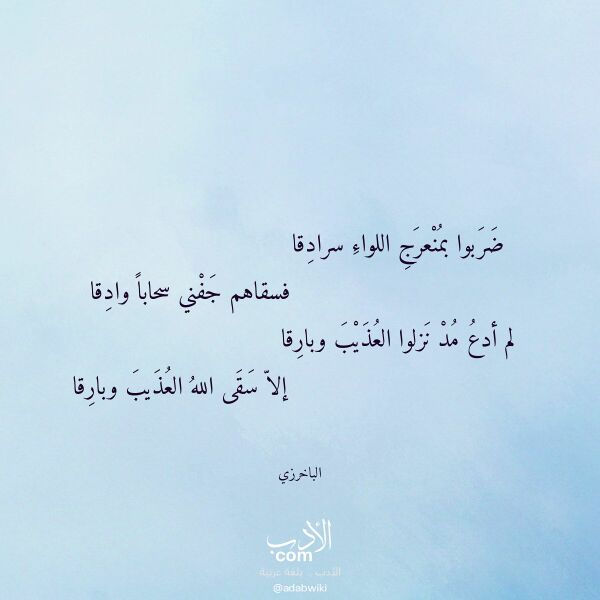 ضَرَبوا بمُنْعرَجِ اللواءِ سرادِقا
فسقاهم جَفْني سحاباً وادِقا
لم أدعُ مُدْ نَزلوا العُذَيْبَ وبارِقا
إلاّ سَقَى اللهُ العُذَيبَ وبارِقا
الباخرزي
الأدب
com
الأدب .. بلغة عربية
@adabwiki